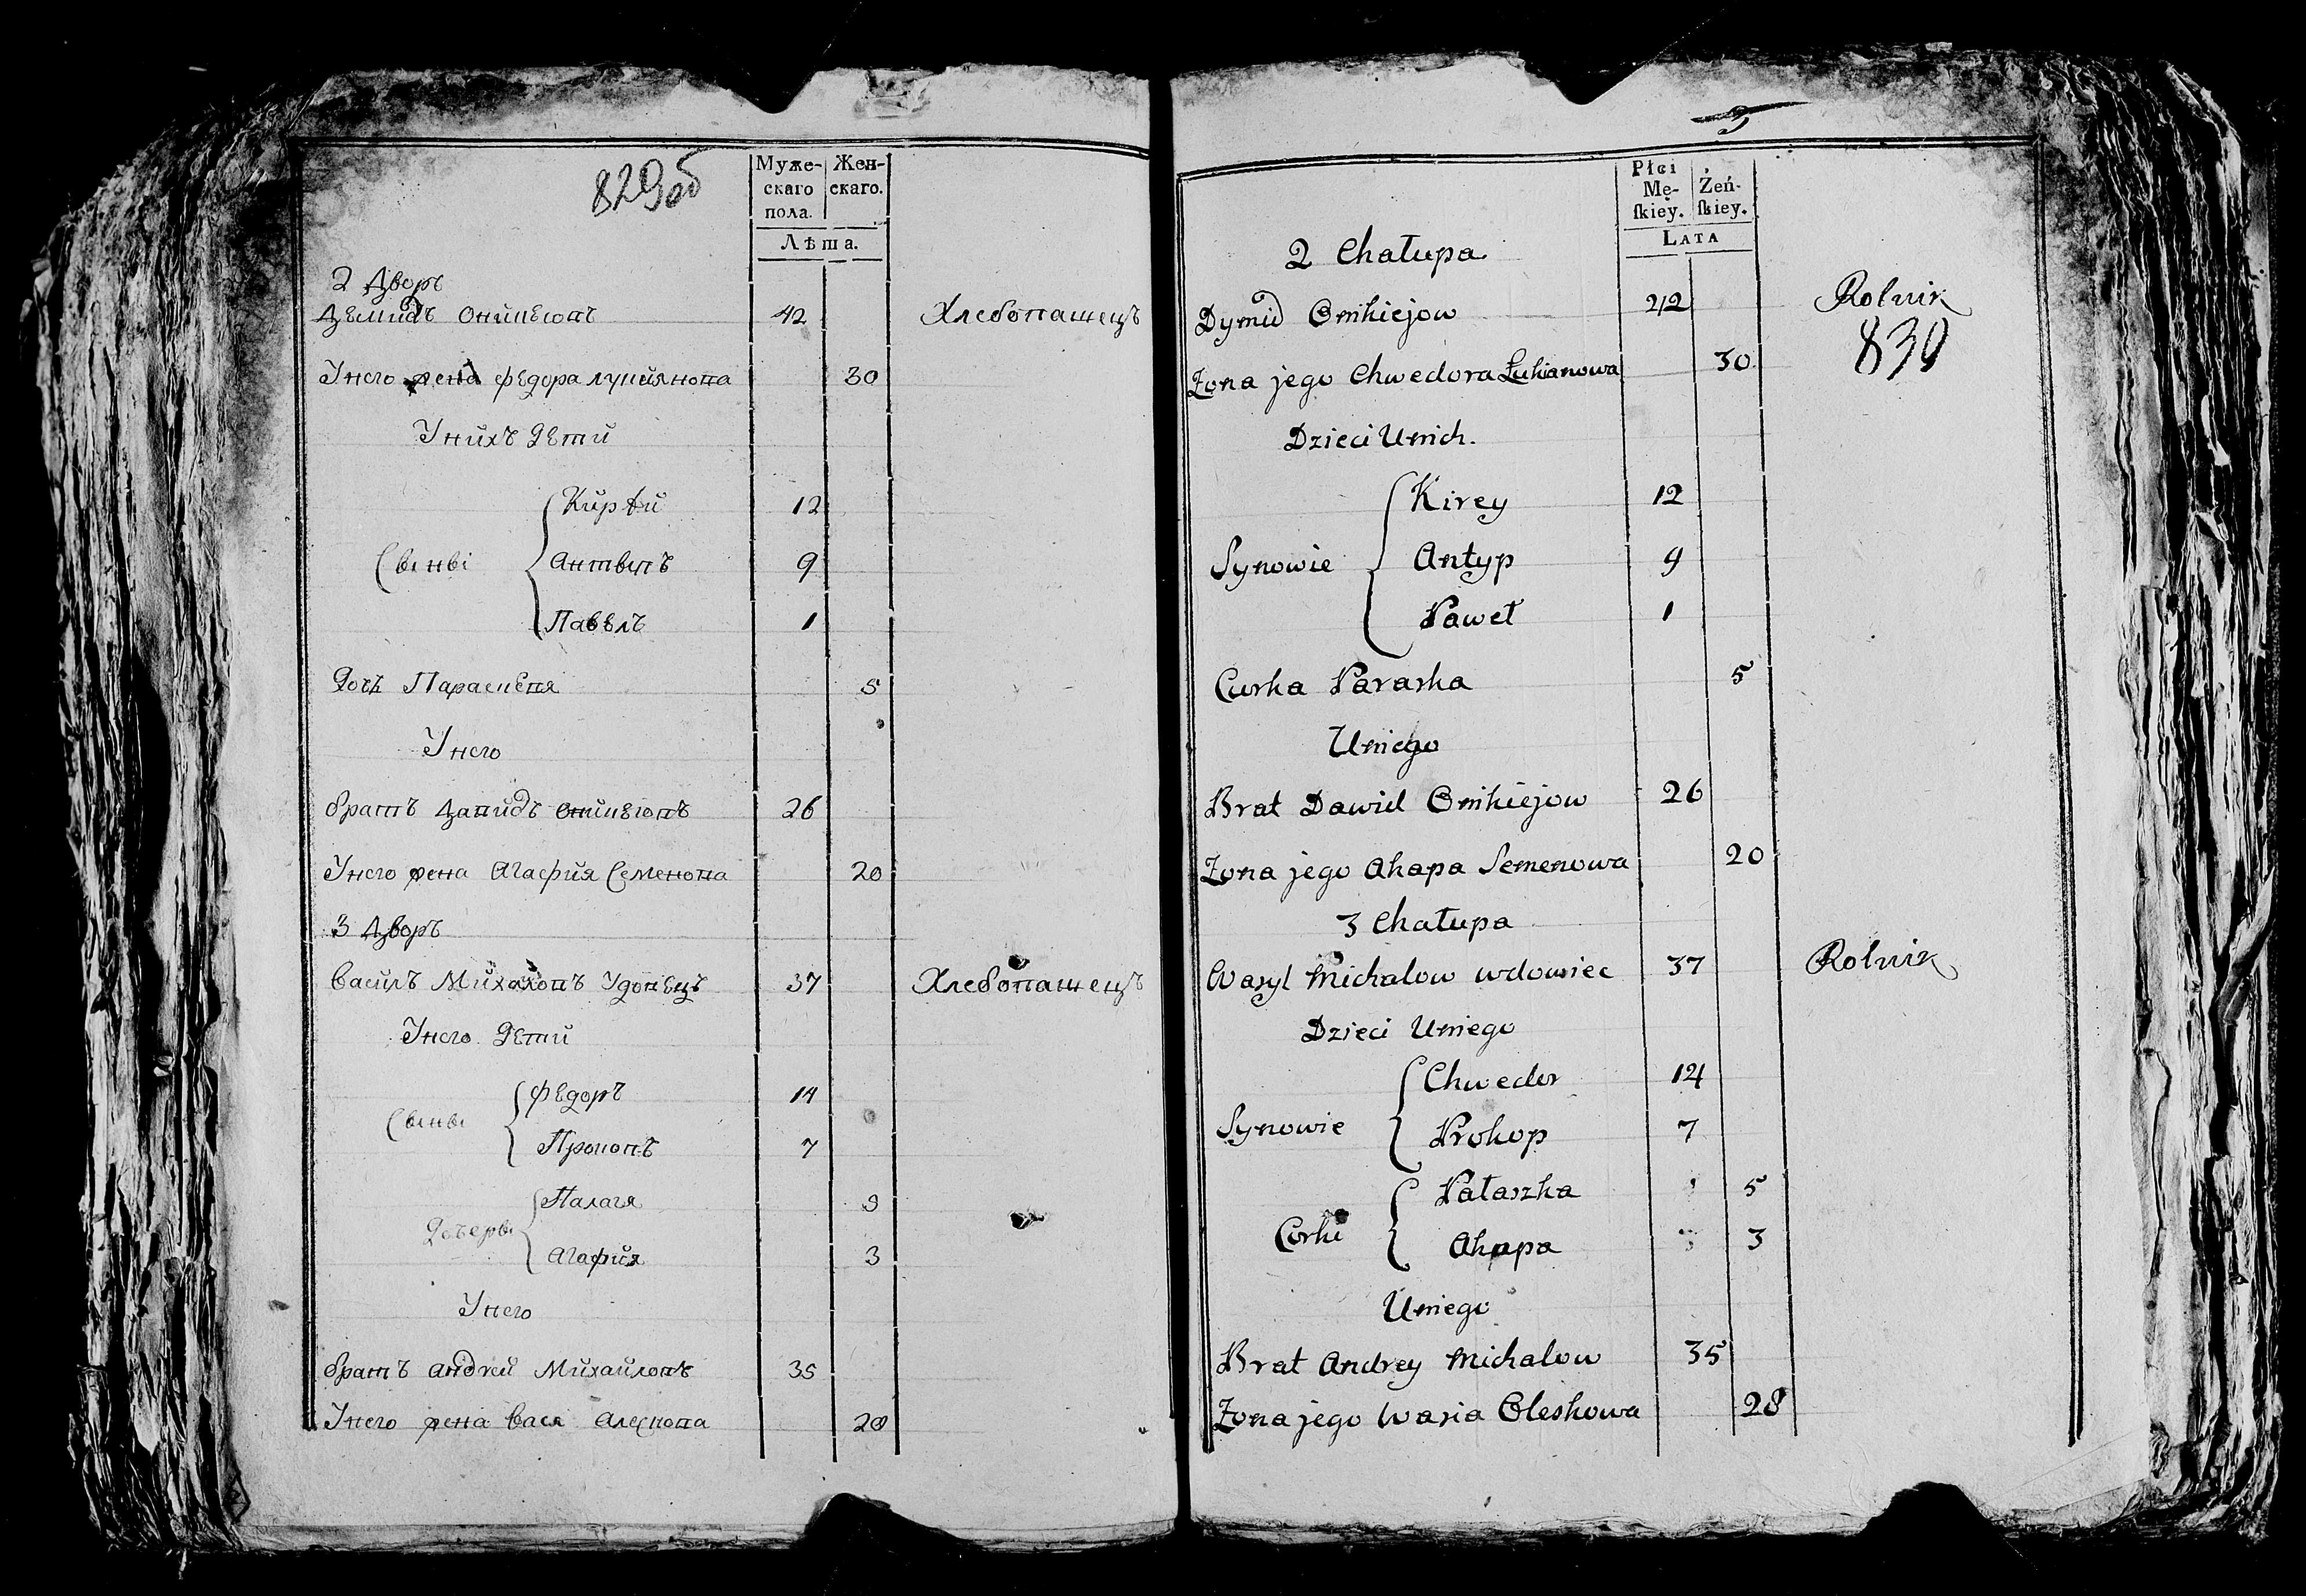 829об
Муже- Жен-
скаго скаго.
пола.
Лѣта.
2 Дворъ
Демидъ Оникеювъ 42 Хлебопашецъ
Унего жена федора лукиянова 30
Унихъ дети
Кирѣй 12
Сыны Антыпъ 9
Павелъ 1
Дочь Параскевя 5
Унего
братъ Давидъ Оникеювъ 26
Унего жена Агафия Семенова 20
3 Дворъ
василъ Михаловъ Удовецъ 37 Хлебопашецъ
Унего дети
Сыны федоръ 14
Прокопъ 7
Дочеры Палагя
Агафия 3
Унего
братъ андрей Михайловъ 35
Унего жена вася Алескова 28
Płci
Mę- Żeń-
ſkiey. ſkiey.
LATA
2 Chałupa
Dymid Onikiejow 42 Rolnik
830
Zona jego Chwedora Łukianowa 30
Dzieci Unich.
Kirey 12
Synowie Antyp 9
Paweł 1
Curka Paraska 5
Uniego
Brat Dawid Onikiejow 26
Zona jego Ahapa Semenowa 20
3 Chałupa
Wasyl Michalow wdowiec 37 Rolnik
Dzieci Uniego
Chwedor 14
Synowie Prokop 7
Pałaszka 5
Corki Ahapa 3
Uniego
Brat Andrey Michalow 35
Zona jego Wasia Oleskowa 28